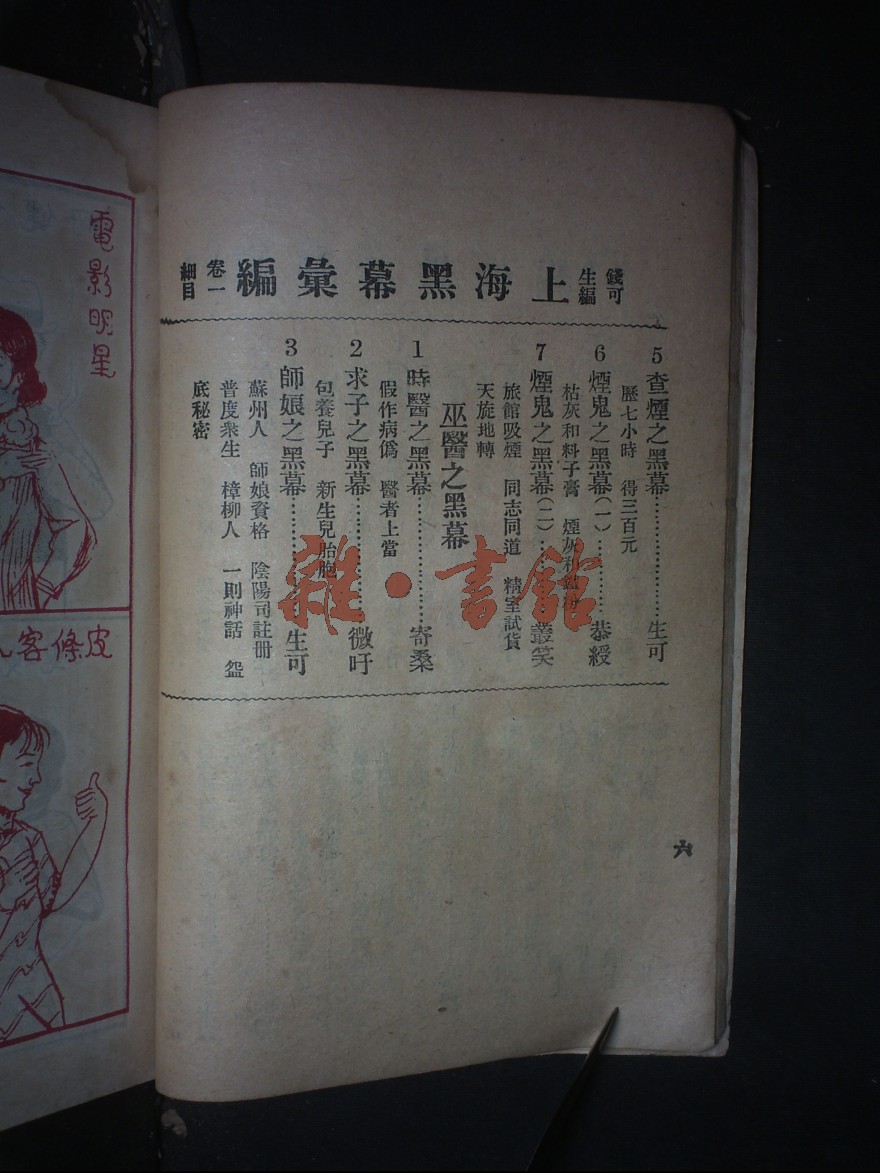 錢可
生編
上海黑幕彙編
卷一
細目
5 查煙之黑幕…………生可
歷七小時 得三百元
6 煙鬼之黑幕(一)…………恭綬
枯灰和料子膏 煙灰和
7 煙鬼之黑幕(二)…………叢笑
旅館吸煙 同志同道 精室試貨
天旋地轉
巫醫之黑幕
1 時醫之黑幕…………寄桑
假作病僞 醫者上當
2 求子之黑幕…………微吁
包養兒子 新生兒胎胞
3 師娘之黑幕…………生可
蘇州人 師娘資格 陰陽司註冊
普度衆生 樟柳人 一則神話 盌
底秘密
六
電影明星
皮條客人
雜·書館